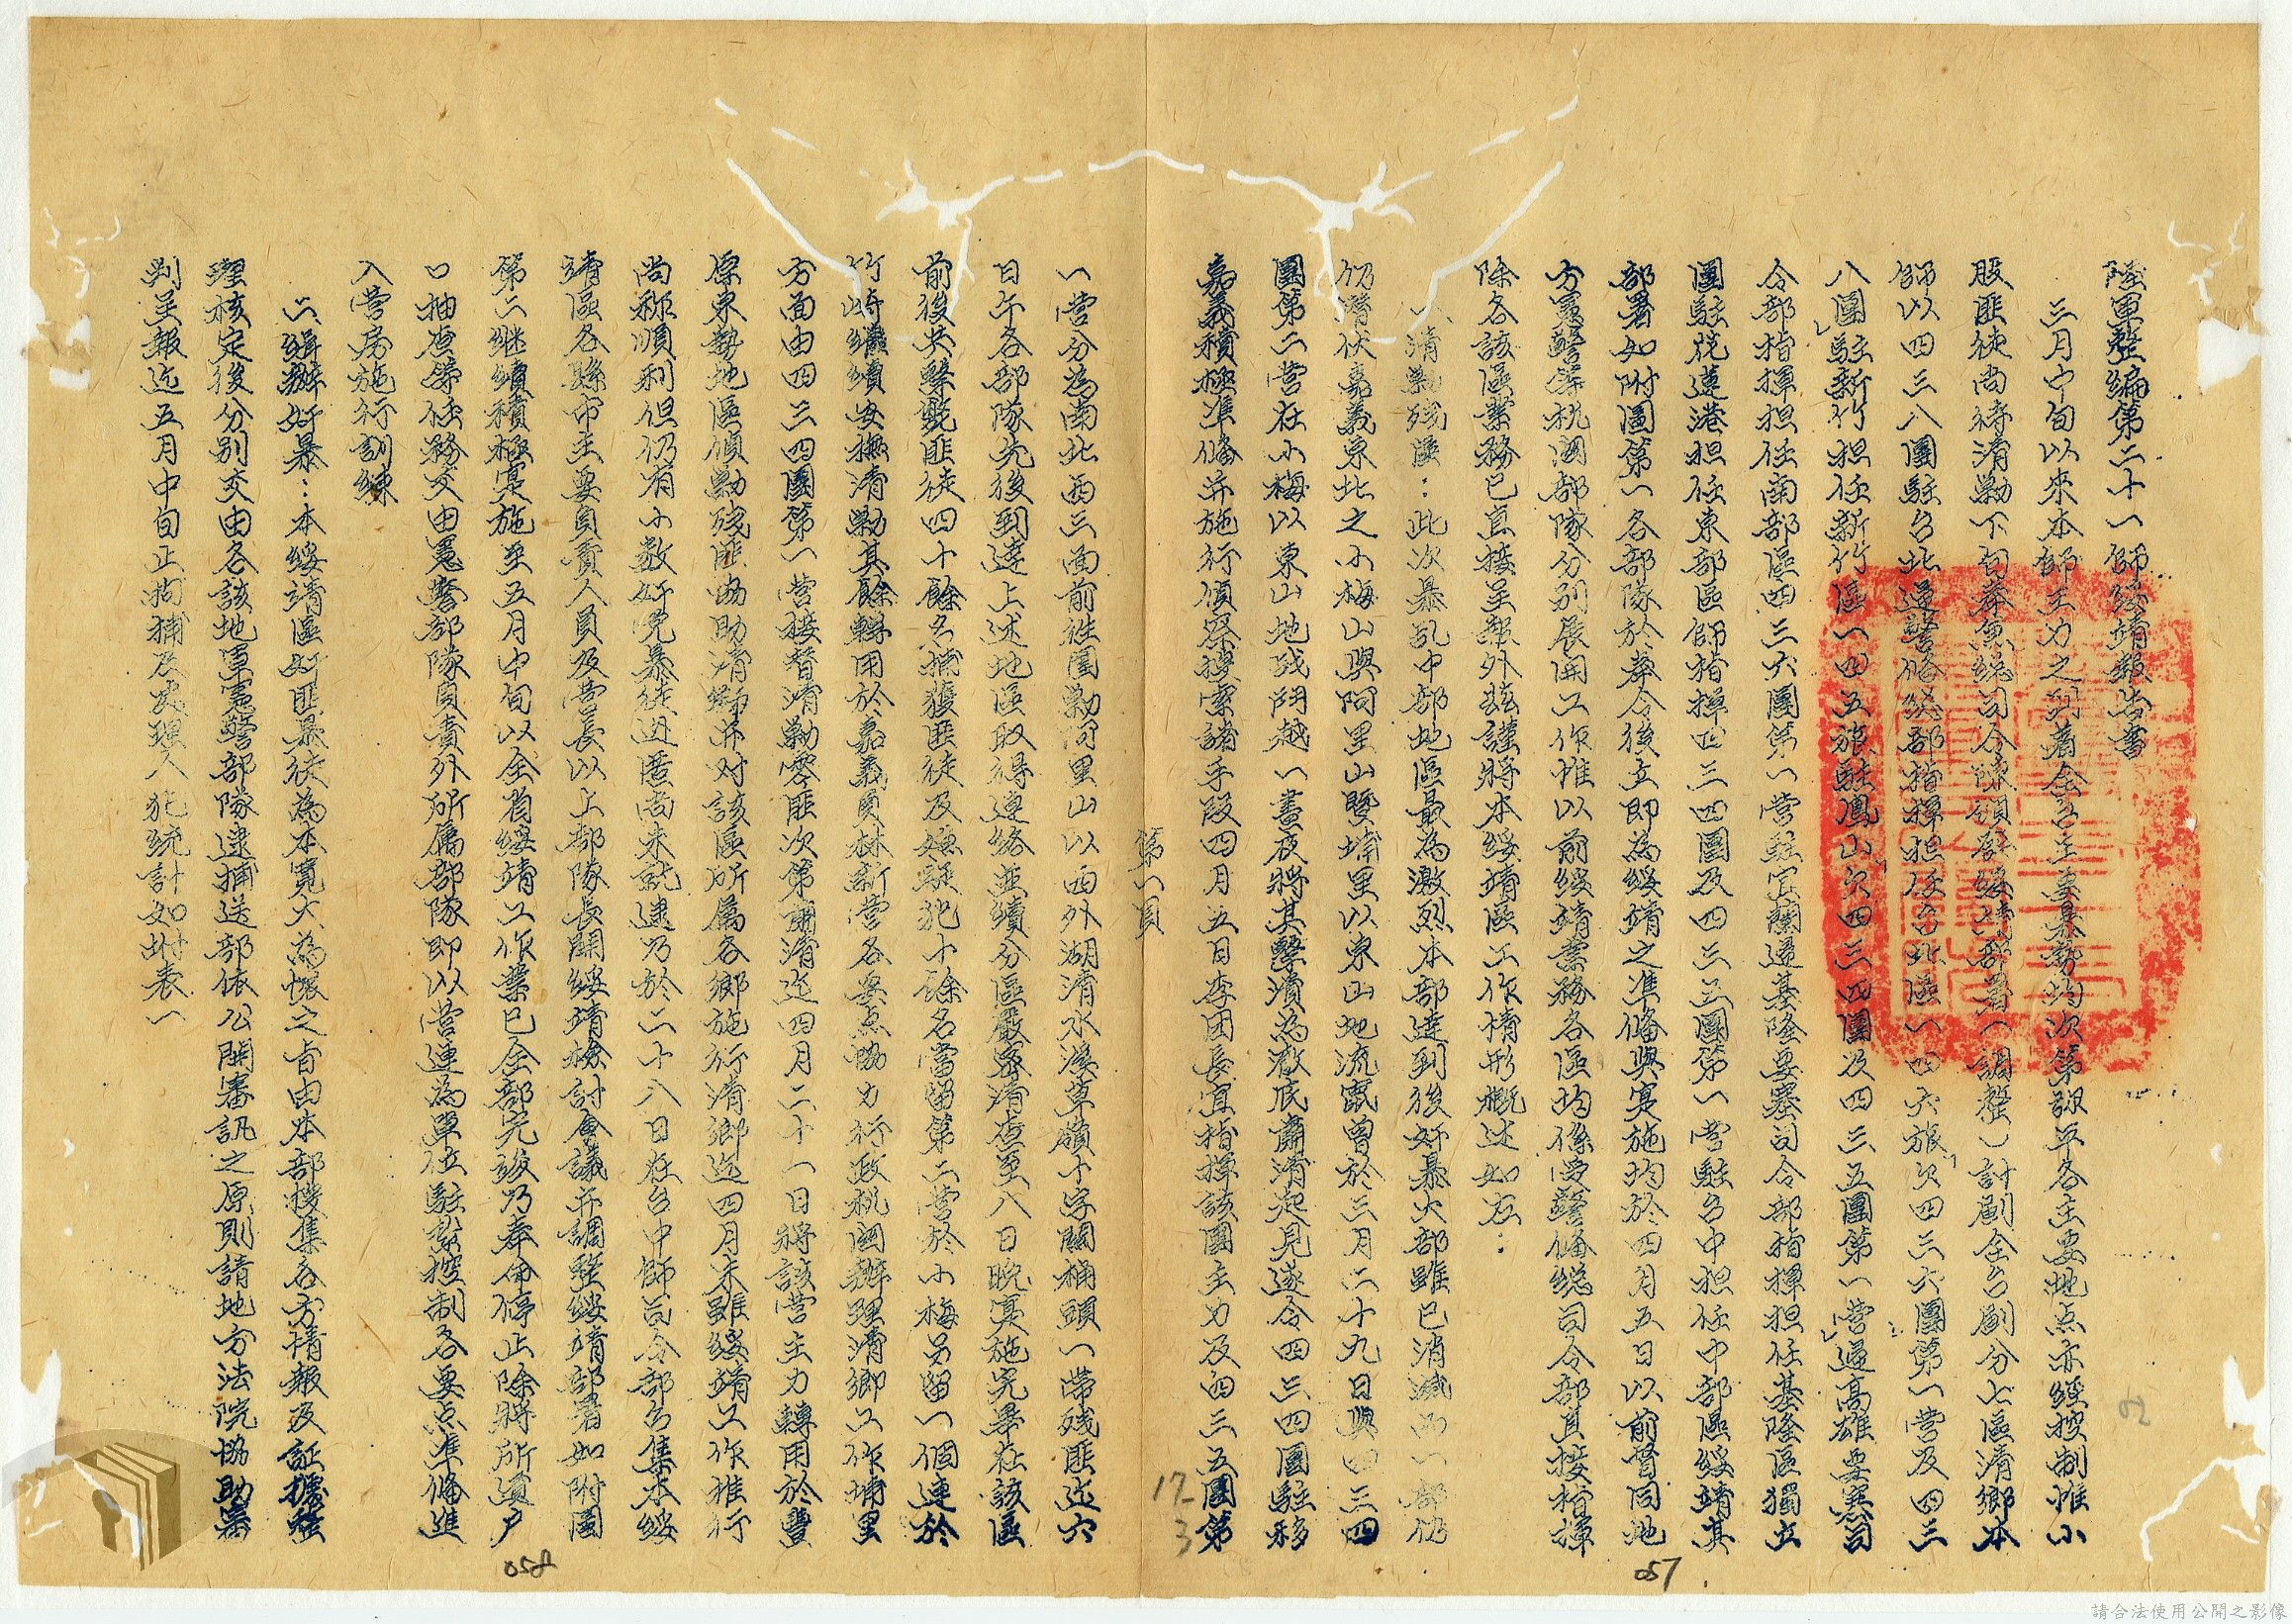 陸軍整編第二十一師綏靖報告書
三月中旬以來本師主力之到着全台主要暴動均次第敉平各主要地点亦經控制惟小
股匪徒尚待清勦下旬奉兼總司令陳頒發綏靖部署(調整)計劃全台劃分七區清鄉本
師以四三八團駐台北還警備總部指揮担任台北區一四六旅欠四三六團第一營及四三
八團駐新竹担任新竹區一四五旅駐鳳山欠四三四團及四三五團第一營還高雄要塞司
令部指揮担任南部區四三六團第一營駐宜蘭還基隆要塞司令部指揮担任基隆區獨立
團駐花蓮港担任東部區師指揮四三四團及四三五團第一營駐台中担任中部區綏靖其
部署如附圖第一各部隊於奉令後立即為綏靖之準備與实施均於四月五日以前督同地
方憲警黨机関部隊分別展開工作惟以前綏靖業務各區均係受警備總司令部直接指揮
除各該區業務已直接呈報外茲謹將本綏靖區工作情形概述如左:
一、清勦残匪:此次暴乱中部地區最為激烈本部達到後奸暴大部雖已消滅而一部仍
仍潛伏嘉義東北之小梅山與阿里山暨埔里以東山地流竄曾於三月二十九日與四三四
團第二營在小梅以東山地残鬥越一晝夜將其擊潰為澈底肅清起見遂令四三四團駐移
嘉義積極準備并施行偵察搜索諸手段四月五日李团長宜指揮該團主力及四三五團第
第一頁
一營分為南北西三面前進圍勦阿里山以西外湖清水溪草嶺十字關桶頭一帶残匪迄六
日午各部隊先後到達上述地區取得連絡並續分區嚴密清查至八日晚实施完畢在該區
前後共擊斃匪徒四十餘名捕獲匪徒及嫌疑犯十餘名當留第二營於小梅另留一個連於
竹崎繼續安撫清勦其餘轉用於嘉義員林新營各要点協力行政机関辦理清鄉工作埔里
方面由四三四團第一營接替清勦零匪次第肅清迄四月二十一日將該營主力轉用於豐
原東勢地區偵勦残匪協助清鄉并对該區所属各鄉施行清鄉迄四月末雖綏靖工作推行
尚称順利但仍有小数奸党暴徒迯匿尚未就逮乃於二十八日在台中師司令部召集本綏
靖區各縣市主要負責人員及營長以上部隊長關綏靖檢討會議并調整綏靖部署如附圖
第二继續積極实施至五月中旬以全省綏靖工作業已全部完竣乃奉命停止除將所遺户
口抽查等任務交由憲警部隊負責外所属部隊即以營連為單位駐紮控制各要点準備進
入營房施行訓練
二、緝辦奸暴:本綏靖區奸匪暴徒為本寬大為懷之旨由本部搜集各方情報及証據整
理核定後分別交由各該地軍憲警部隊逮捕送部依公開審訊之原則請地方法院協助審
判呈報迄五月中旬正拘捕及处理人犯統計如附表一
17-3
057
058
52
請合法使用公開之影像